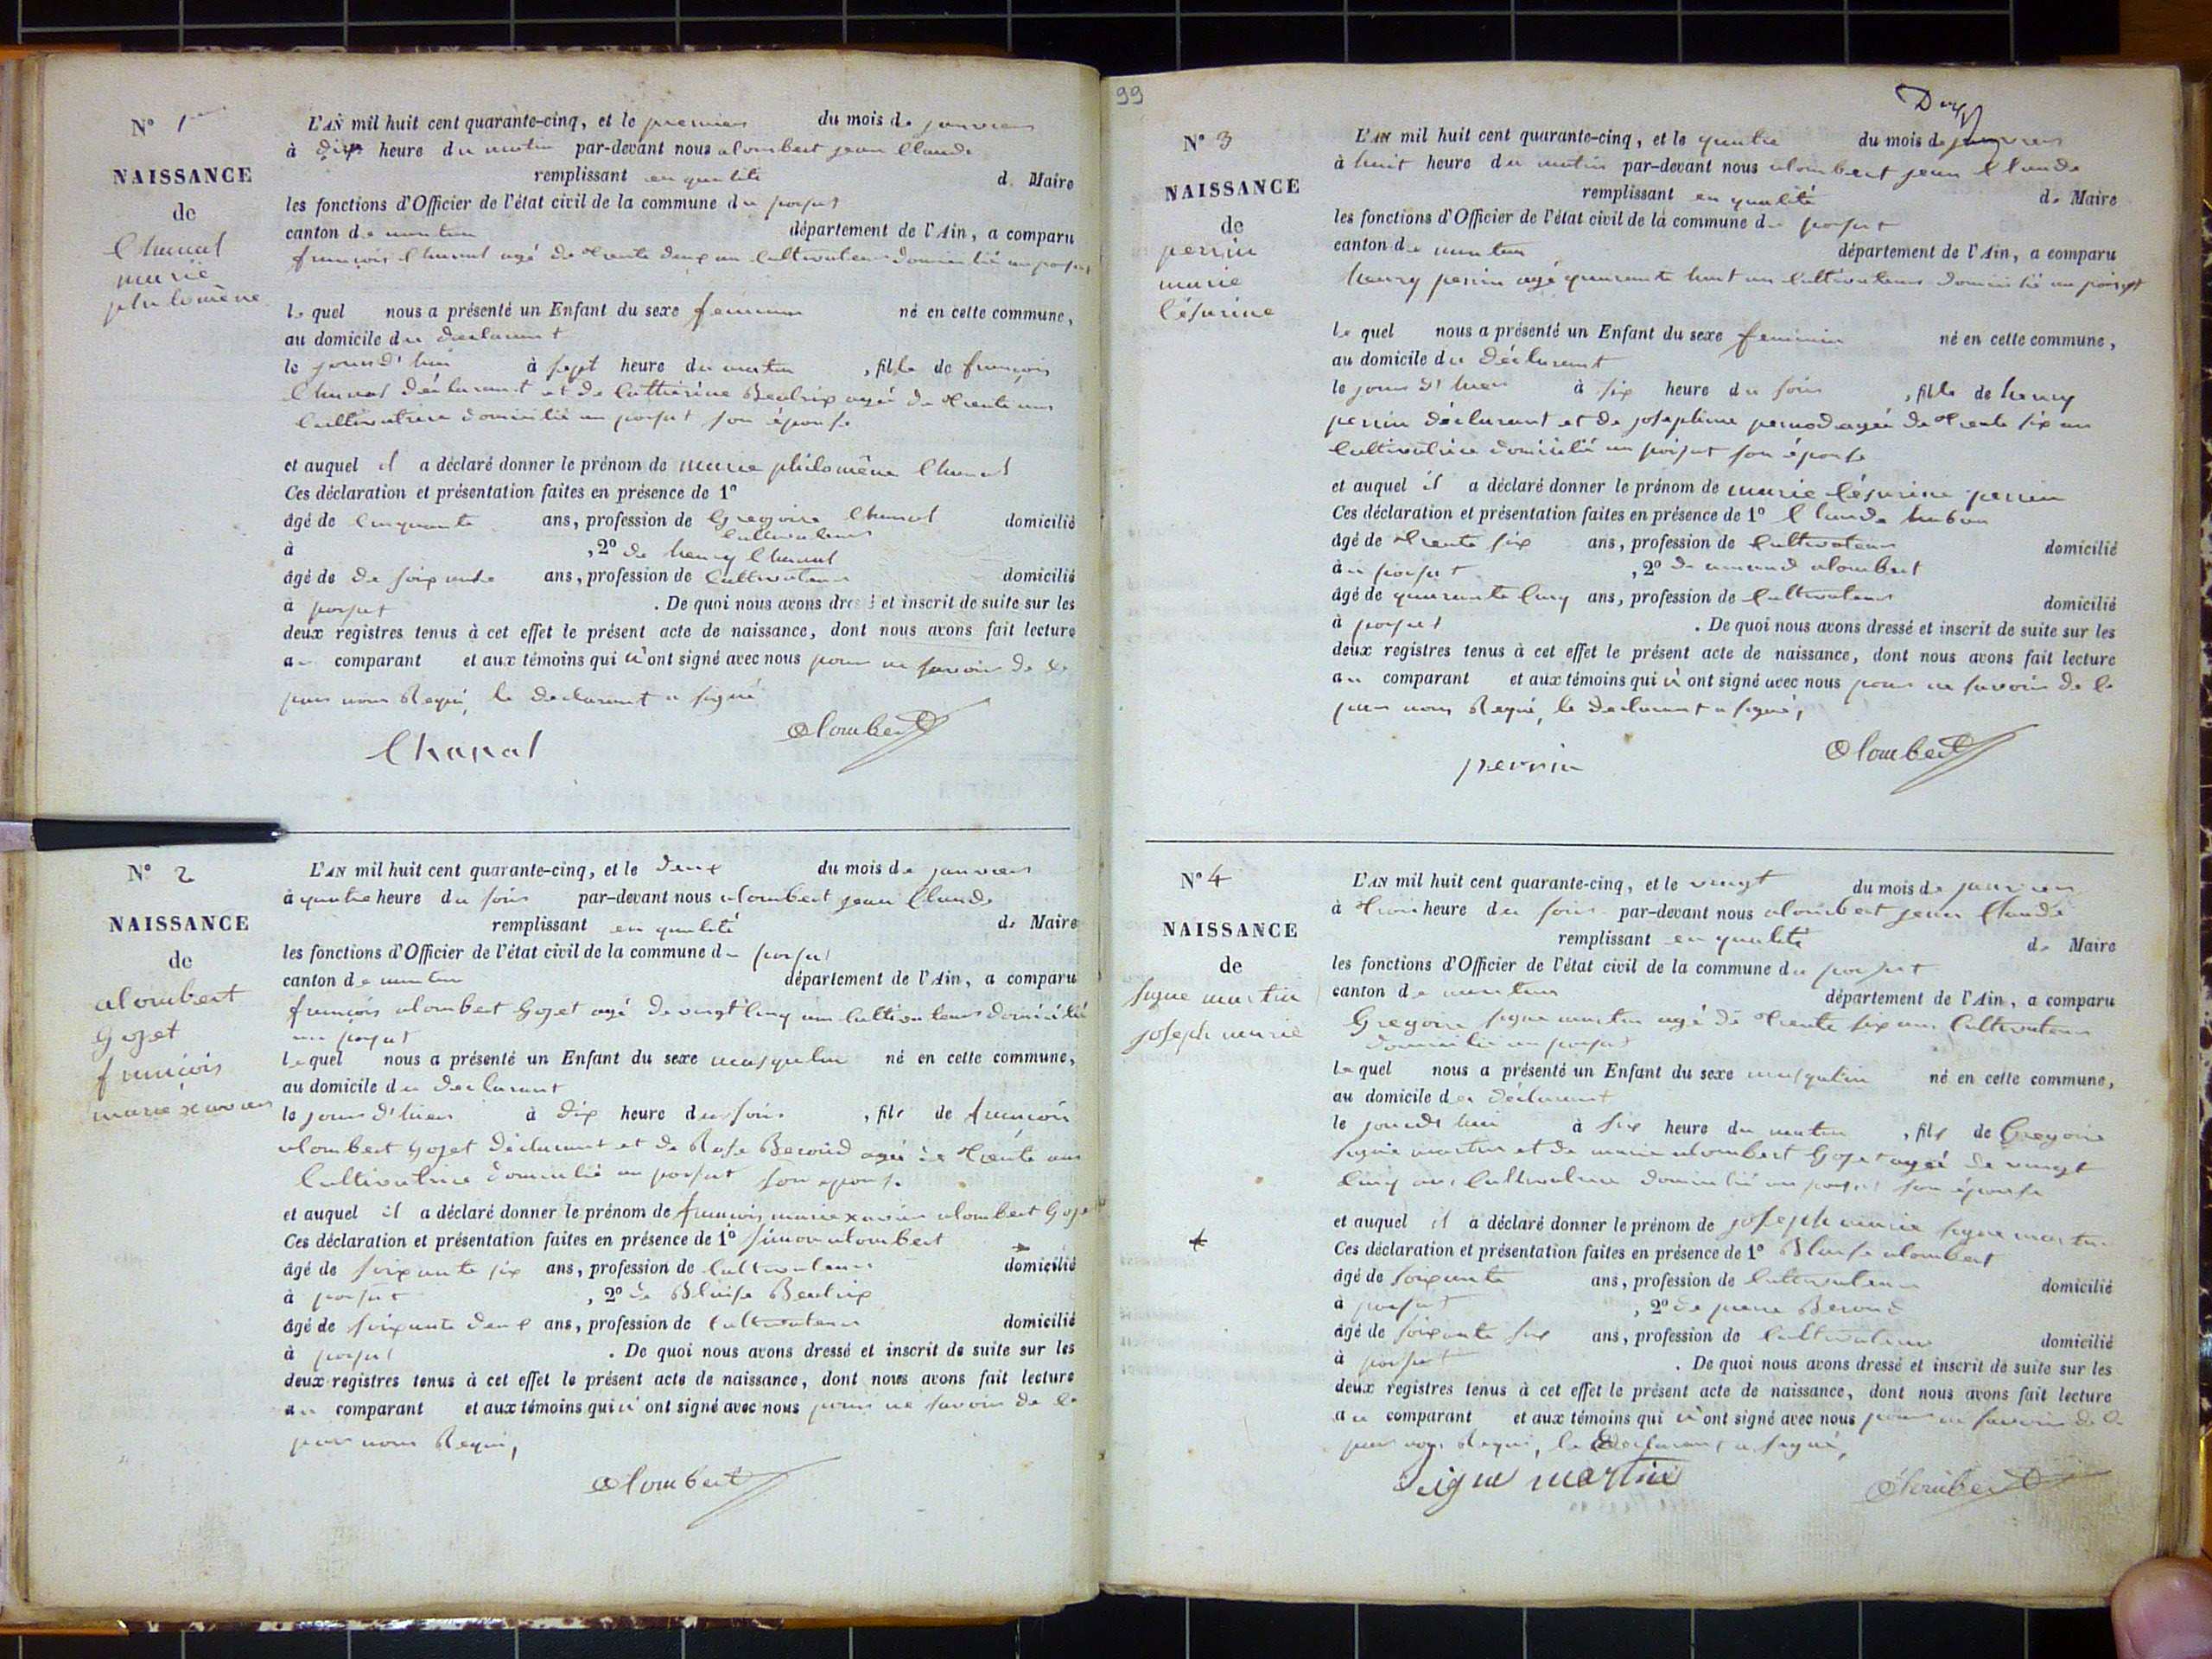 N° 1er
NAISSANCE
de
Chanal
marie
philomène
L'AN mil huit cent quarante-cinq, et le premier du mois de janvier
à dix heure du matin par-devant nous alombert jean Claude
remplissant en qualité de Maire
les fonctions d'Officier de l'état civil de la commune du poisat
canton de nantua département de l'Ain, a comparu
françois Chanal agé de trente deux an Cultivateur domicilié au poisat
le quel nous a présenté un Enfant du sexe feminin né en cette commune,
au domicile du declarant
le jourd'hui à sept heure du matin , fille de françois
Chanal déclarant et de Catherine Beatrix agée de trente ans
Cultivatrice domicilié au poisat son éponse
et auquel il a déclaré donner le prénom de marie philomène Chanal
Ces déclaration et présentation faites en présence de 1°
âgé de Cinquante ans, profession de Gregoire Chanal domicilié
Cultivateur
à , 2° de henry Chanal
âgé de de soixante ans, profession de Cultivateur domicilié
à poisat . De quoi nous avons dressé et inscrit de suite sur les
deux registres tenus à cet effet le présent acte de naissance, dont nous avons fait lecture
au comparant et aux témoins qui n'ont signé avec nous pour ne savoir de ce
par nous Requi, le declarant a signé
Chanal alombert
N° 2
NAISSANCE
de
alombert
Goget
françois
marie xavier
L'AN mil huit cent quarante-cinq, et le deux du mois de janvier
à quatre heure du soir par-devant nous alombert jean Claude
remplissant en qualité de Maire
les fonctions d'Officier de l'état civil de la commune du poisat
canton de nantua département de l'Ain, a comparu
françois alombert Goget agé de vingt Cinq ans Cultivateur domicilié
au poisat
le quel nous a présenté un Enfant du sexe masqulin né en cette commune,
au domicile du declarant
le jour d'hier à dix heure du soir , fils de françois
alombert Goget déclarant et de Rose Beroud agée de trente ans
Cultivatrice domicilié au poisat son eponse
et auquel il a déclaré donner le prénom de françois marie xavier alombert Goge
Ces déclaration et présentation faites en présence de 1° simon alombert
âgé de soixante six ans, profession de Cultivateur domicilié
à poisat , 2° de Blaise Beatrix
âgé de soixante deux ans, profession de Cultivateur domicilié
à poisat . De quoi nous avons dressé et inscrit de suite sur les
deux registres tenus à cet effet le présent acte de naissance, dont nous avons fait lecture
au comparant et aux témoins qui n'ont signé avec nous pour ne savoir de ce
par nous Requi,
alombert
99
N° 3
NAISSANCE
de
perrin
marie
Césarine
L'AN mil huit cent quarante-cinq, et le quatre du mois de janvier
à huit heure du matin par-devant nous alombert jean Claude
remplissant en qualité de Maire
les fonctions d'Officier de l'état civil de la commune du poisat
canton de nantua département de l'Ain, a comparu
henry perrin agé quarante huit ans Cultivateur domicilié au poisat
le quel nous a présenté un Enfant du sexe feminin né en cette commune,
au domicile du déclarant
le jour d'hier à six heure du soir , fille de henry
perrin déclarant et de josephine pernod agée de trente six an
Cultivatrice domicilié au poisat son éponse
et auquel il a déclaré donner le prénom de marie Césarine perrin
Ces déclaration et présentation faites en présence de 1° Claude
âgé de trente six ans, profession de Cultivateur domicilié
à au poisat , 2° de armand alombert
âgé de quarante Cinq ans, profession de Cultivateur domicilié
à poisat . De quoi nous avons dressé et inscrit de suite sur les
deux registres tenus à cet effet le présent acte de naissance, dont nous avons fait lecture
au comparant et aux témoins qui n'ont signé avec nous pour ne savoir de ce
par nous Requi, le declarant a signé,
perrin alombert
N° 4
NAISSANCE
de
signe martin
joseph marie
L'AN mil huit cent quarante-cinq, et le vingt du mois de janvier
à trois heure du soir par-devant nous alombert jean Claude
remplissant en qualité de Maire
les fonctions d'Officier de l'état civil de la commune du poisat
canton de nantua département de l'Ain, a comparu
Gregoire signe martin agé de trente six ans Cultivateur
domicilié au poisat
le quel nous a présenté un Enfant du sexe masqulin né en cette commune,
au domicile du déclarant
le jourd hui à six heure du matin , fils de Gregoire
signe martin et de marie alombert Goget agée de vingt
Cinq ans Cultivatrice domicilié au poisat son éponse
et auquel il a déclaré donner le prénom de joseph marie signe martin
Ces déclaration et présentation faites en présence de 1° Blaise alombert
âgé de soixante ans, profession de Cultivateur domicilié
à poisat , 2° de pierre Beroud
âgé de soixante six ans, profession de Cultivateur domicilié
à poisat . De quoi nous avons dressé et inscrit de suite sur les
deux registres tenus à cet effet le présent acte de naissance, dont nous avons fait lecture
au comparant et aux témoins qui n'ont signé avec nous pour ne savoir de ce
par nous Requi, le declarant a signé,
Signe martin alombert